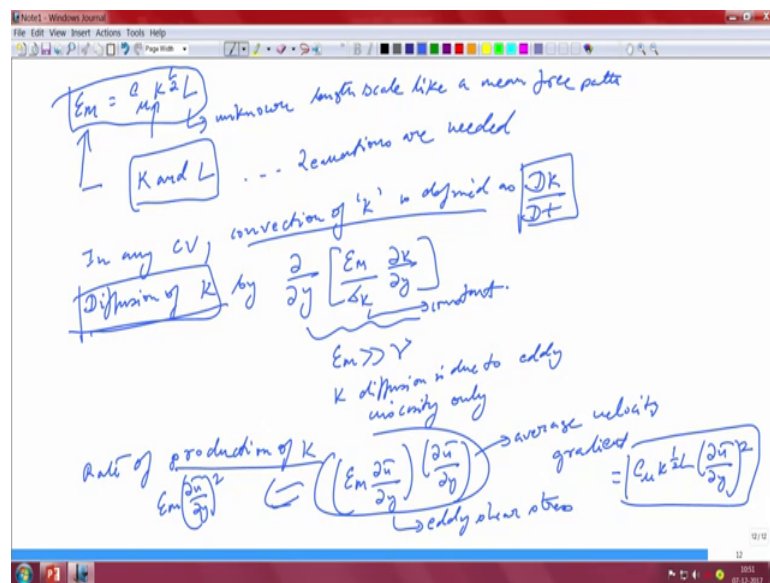 Note1 - Windows Journal
File Edit View Insert Actions Tools Help
Page Width
B I
Em = Cμ K^½ L
unknown length scale like a mean free path
K and L .... 2 equations are needed
In any CV, convection of 'K' is defined as DK/Dt
Diffusion of K by ∂/∂y [Em/σK ∂k/∂y]
constant.
Em >> ν
K diffusion is due to eddy
viscosity only
average velocity
gradient
Rate of production of K (Em ∂ū/∂y) (∂ū/∂y) = Cμ K^½ L (∂ū/∂y)²
Em (∂ū/∂y)² ⇐
eddy shear stress
12/12
12
10:51
07-12-2017